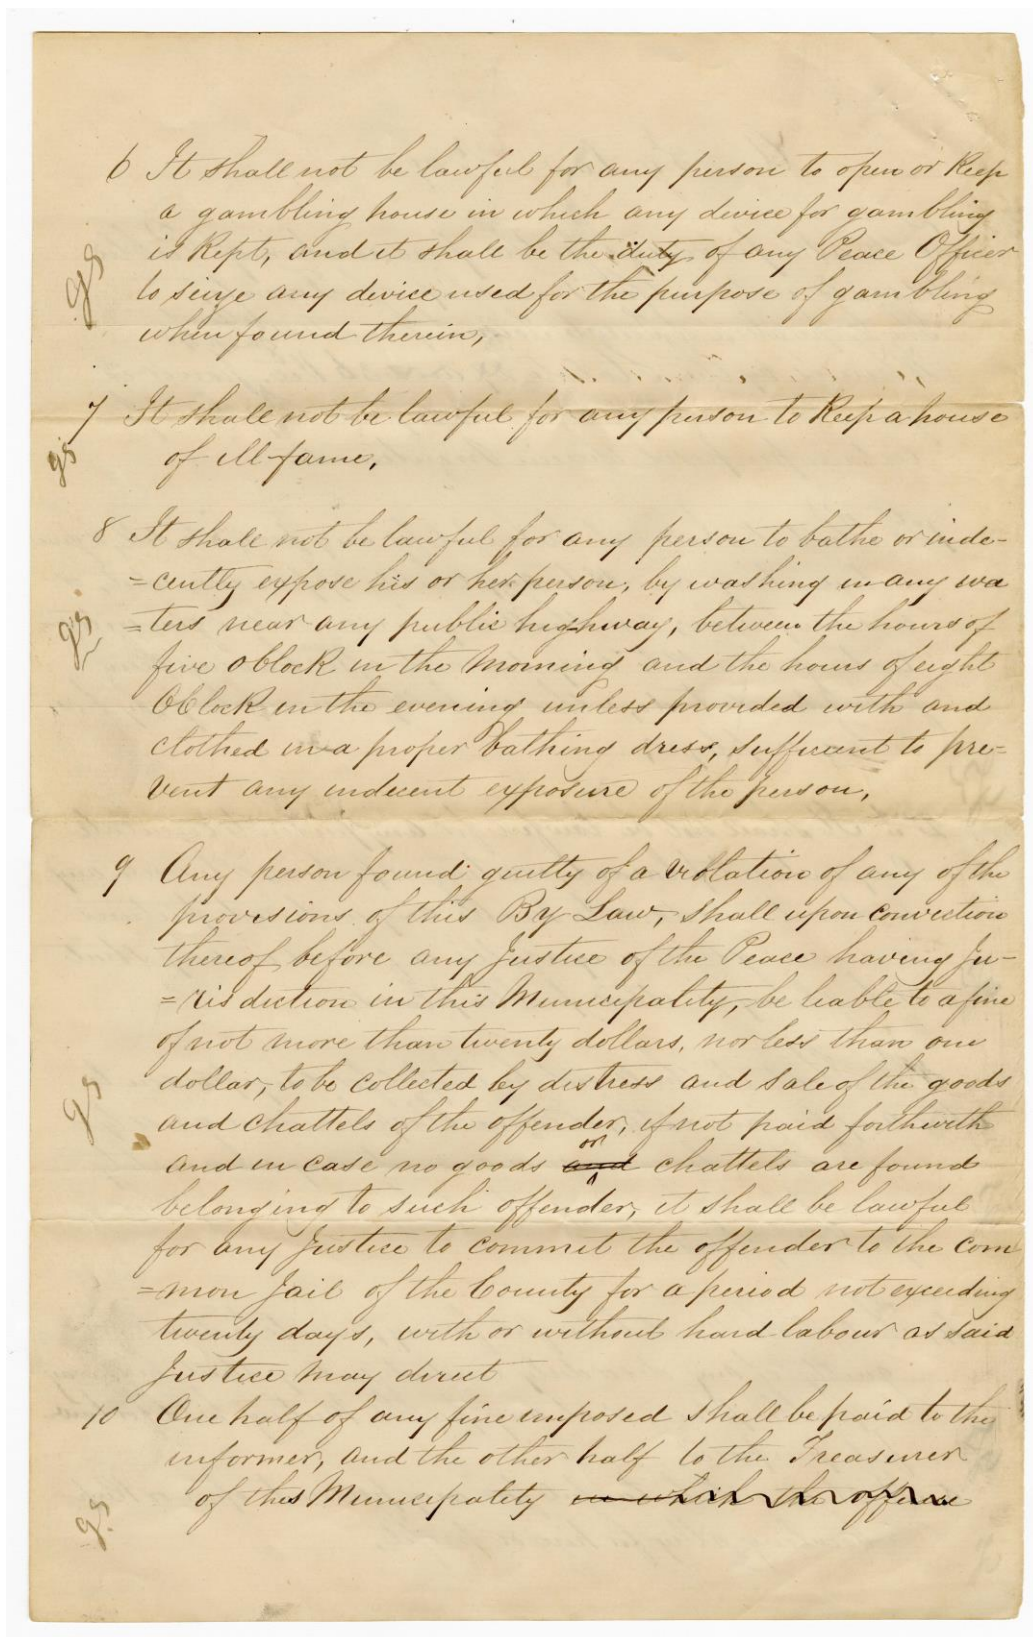 6 It shall not be lawful for any person to open or Keep
a gambling house in which any device for gambling
is Kept, and it shall be the duty of any Peace Officer
to seize any device used for the purpose of gambling
when found therein,
7 It shall not be lawful for any person to Keep a house
of ill-fame,
8 It shall not be lawful for any person to bathe or inde-
=cently expose his or her person, by washing in any wa
=ters near any public highway, between the hours of
five oClock in the Morning and the hours of eight
OClock in the evening unless provided with and
clothed in a proper bathing dress, sufficient to pre=
vent any indecent exposure of the person,
9 Any person found guilty of a violation of any of the
provisions of this By Law, shall upon conviction
thereof before any Justice of the Peace having Ju-
=risdiction in this Municipality, be liable to a fine
of not more than twenty dollars, nor less than one
dollar, to be collected by distress and sale of the goods
and chattels of the offender, if not paid forthwith
and in case no goods and or chattels are found
belonging to such offender, it shall be lawful
for any Justice to commit the offender to the Com
=mon Jail of the County for a period not exceeding
twenty days, with or without hard-labour as said
Justice may direct
10 One half of any fine imposed shall be paid to the
informer, and the other half to the Treasurer
of this Municipality in which the offence